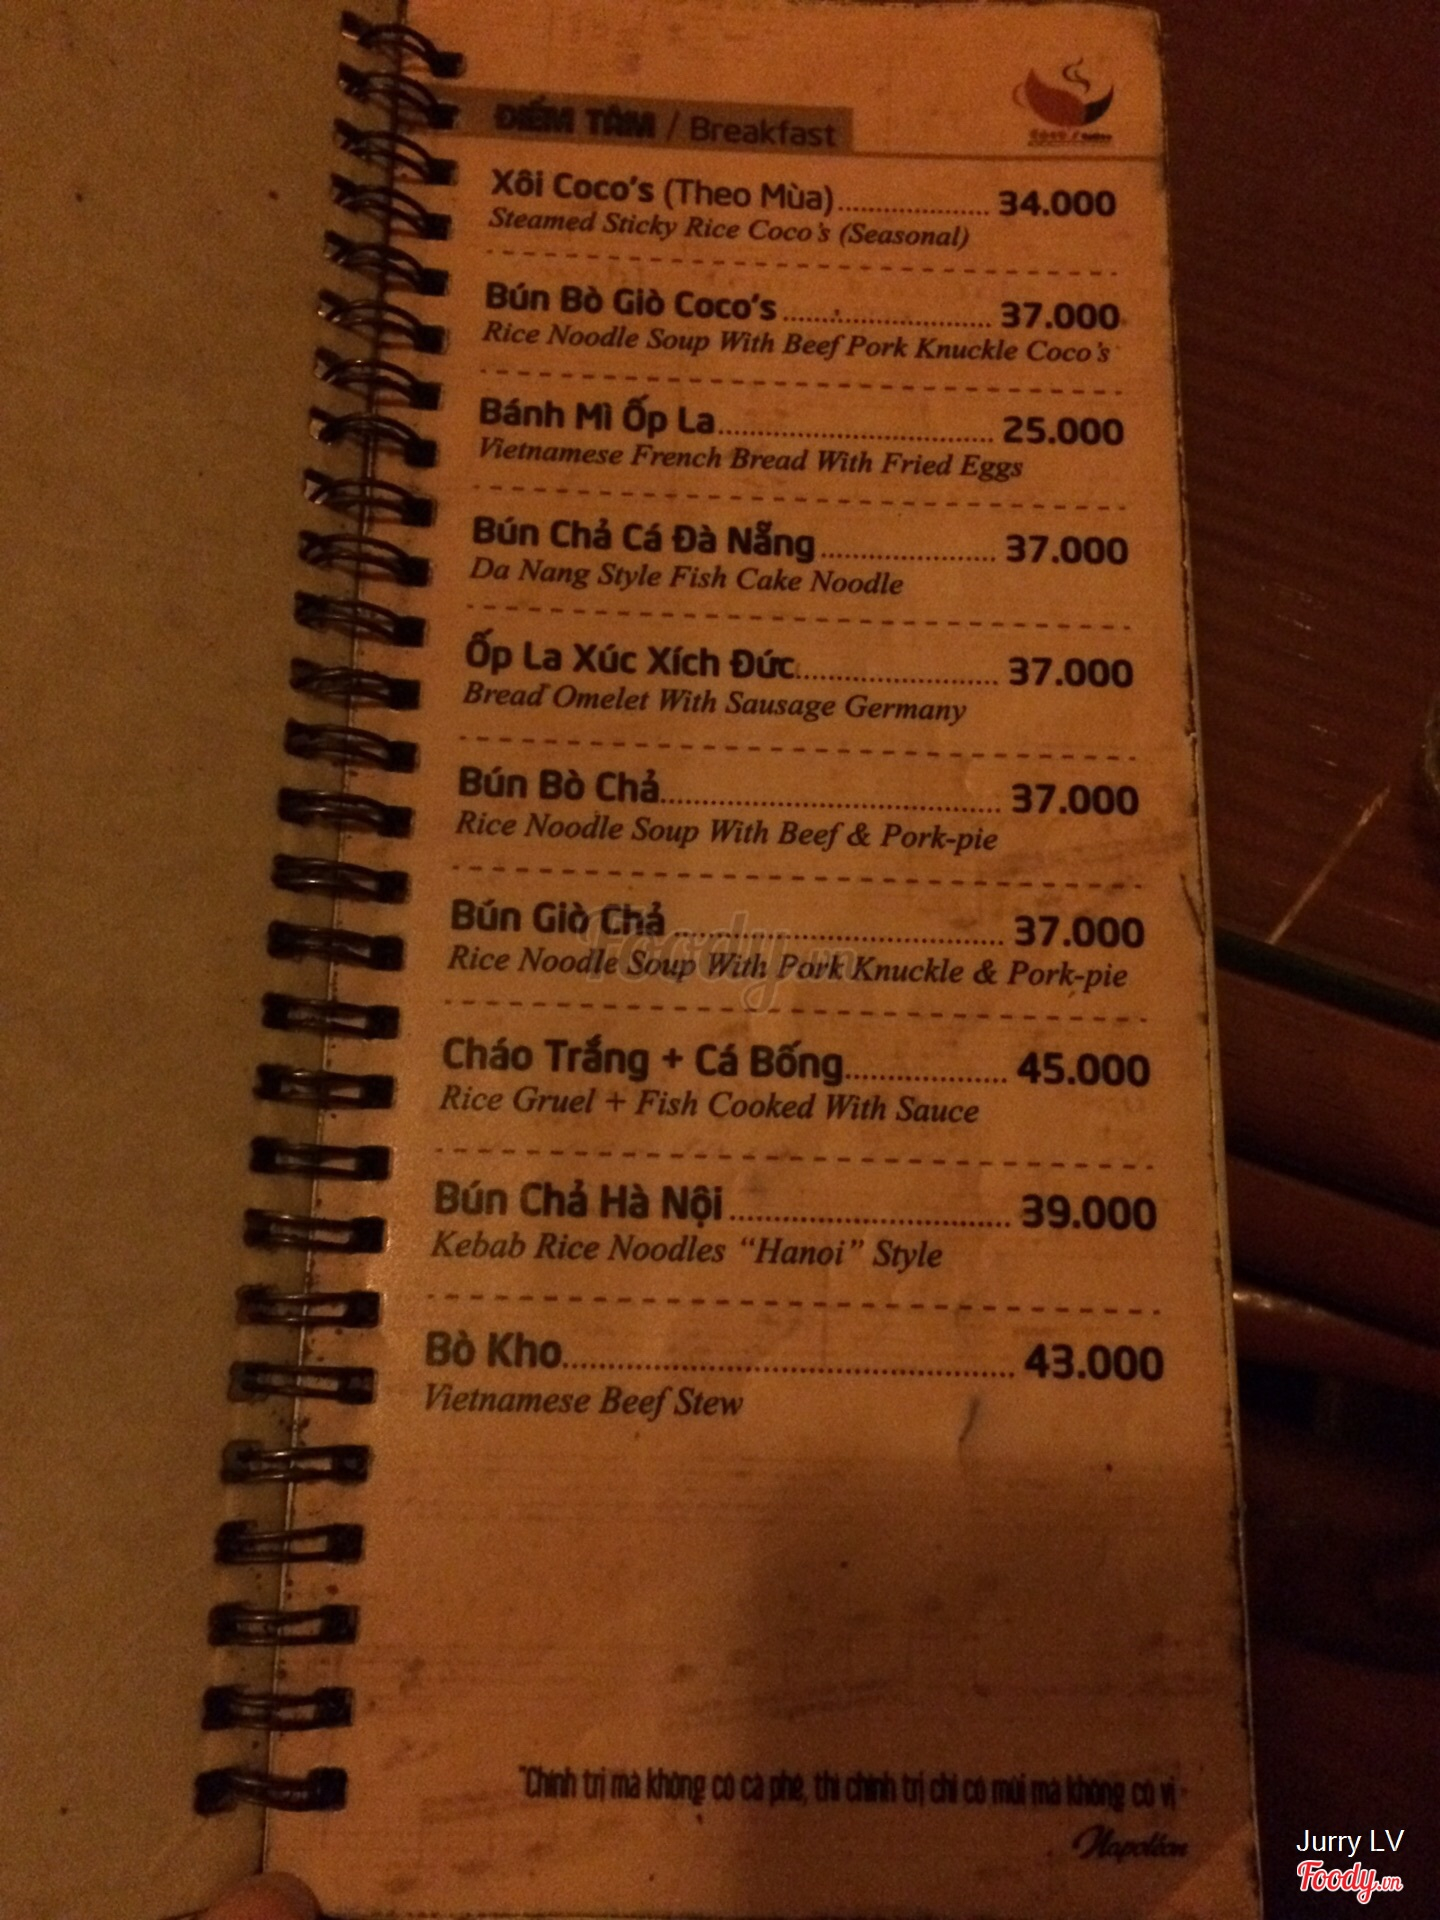 ĐIỂM TÂM / Breakfast
Xôi Coco's (Theo Mùa) 34.000
Steamed Sticky Rice Coco's (Seasonal)
Bún Bò Giò Coco's 37.000
Rice Noodle Soup With Beef Pork Knuckle Coco's
Bánh Mì Ốp La 25.000
Vietnamese French Bread With Fried Eggs
Bún Chả Cá Đà Nẵng 37.000
Da Nang Style Fish Cake Noodle
Ốp La Xúc Xích Đức 37.000
Bread Omelet With Sausage Germany
Bún Bò Chả 37.000
Rice Noodle Soup With Beef & Pork-pie
Bún Giò Chả 37.000
Rice Noodle Soup With Pork Knuckle & Pork-pie
Foody.vn
Cháo Trắng + Cá Bống 45.000
Rice Gruel + Fish Cooked With Sauce
Bún Chả Hà Nội 39.000
Kebab Rice Noodles “Hanoi” Style
Bò Kho 43.000
Vietnamese Beef Stew
"Chính trị mà không có cà phê, thì chính trị chỉ có mùi mà không có vị"
Napoléon
Jurry LV
Foody.vn